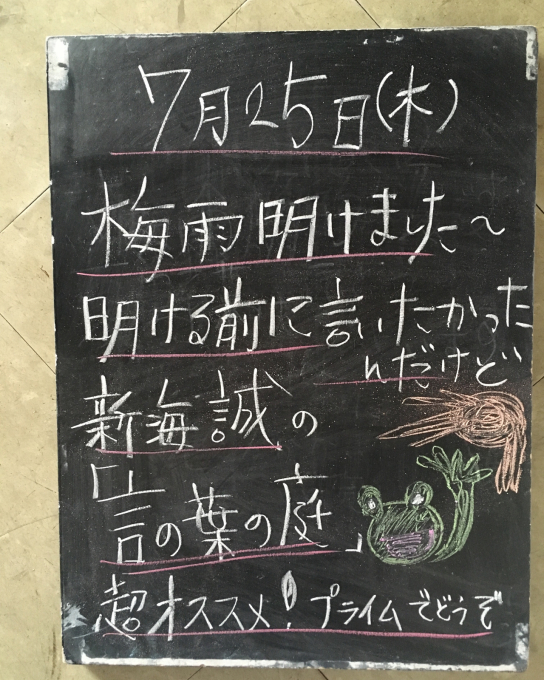 7月25日(木)
梅雨明けました〜
明ける前に言いたかった
んだけど
新海誠の
「言の葉の庭」
超オススメ!プライムでどうぞ